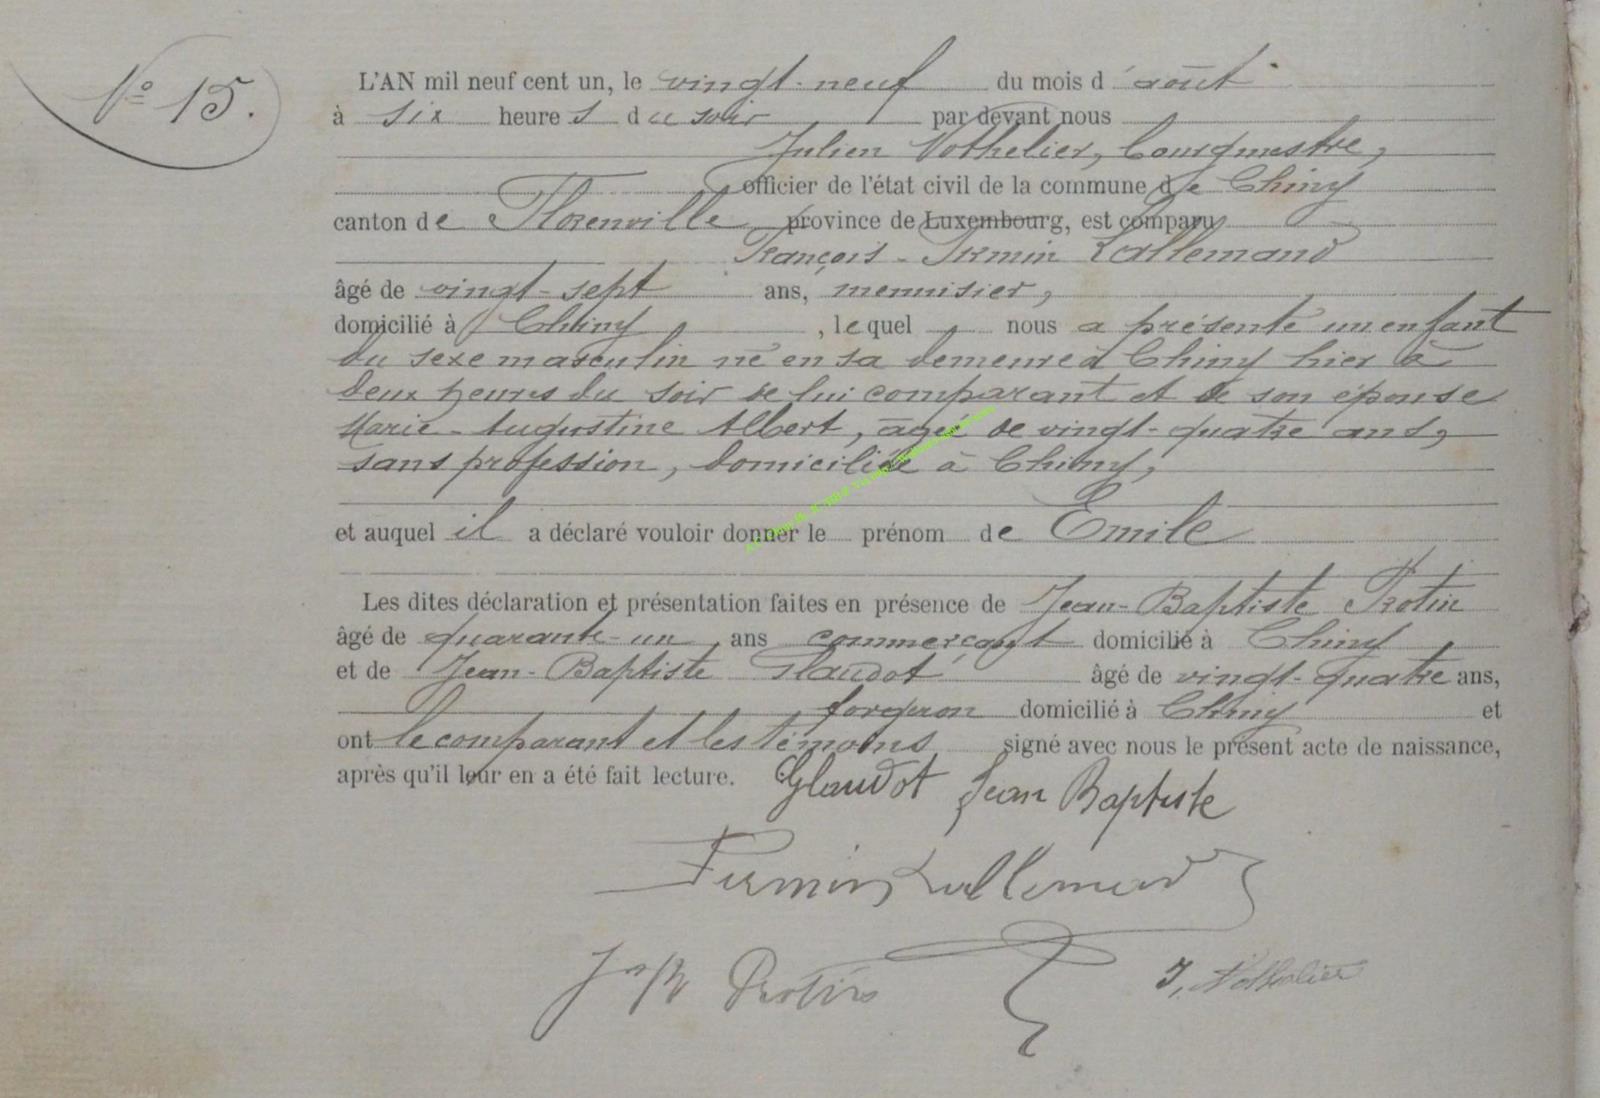 N° 15.
L'AN mil neuf cent un, le vingt-neuf du mois d'août
à six heures du soir par devant nous
Julien Nothelier, bourgmestre,
officier de l'état civil de la commune de Chiny
canton de Florenville province de Luxembourg, est comparu
François-Firmin Lallemand
âgé de vingt-sept ans, menuisier,
domicilié à Chiny, lequel nous a présenté un enfant
du sexe masculin né en sa demeure à Chiny hier à
deux heures du soir de lui comparant et de son épouse
Marie-Augustine Albert, âgée de vingt-quatre ans,
sans profession, domiciliée à Chiny,
et auquel il a déclaré vouloir donner le prénom de Emile
Les dites déclaration et présentation faites en présence de Jean-Baptiste
âgé de quarante-un ans commerçant domicilié à Chiny
et de Jean-Baptiste Glaudot âgé de vingt-quatre ans,
forgeron domicilié à Chiny et
ont le comparant et les témoins signé avec nous le présent acte de naissance,
après qu'il leur en a été fait lecture. Glaudot Jean Baptiste
Firmin Lallemand
J. Nothelier